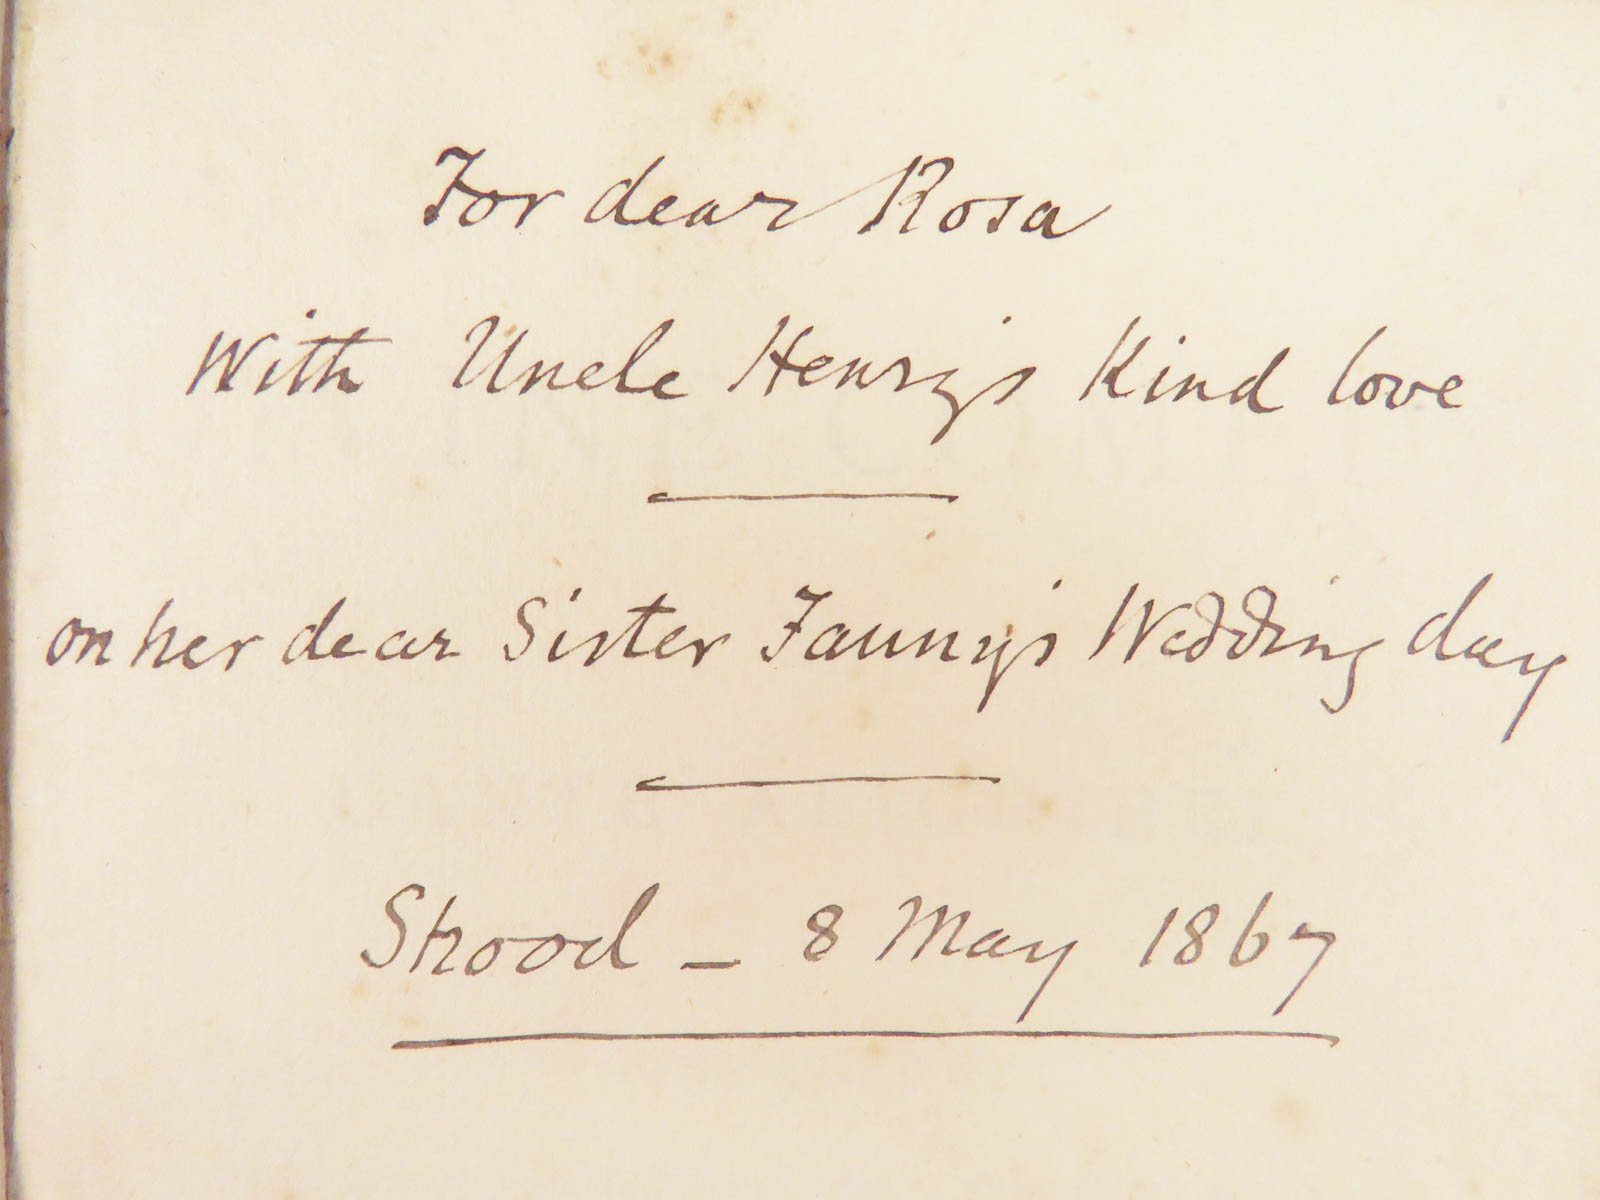 For dear Rosa
With Uncle Henry's Kind love
on her dear Sister Fanny's Wedding day
Strood – 8 May 1867